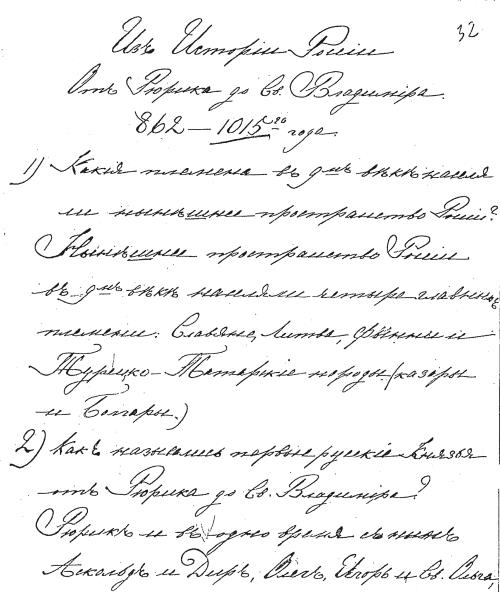 32
Изъ Исторіи Россіи
Отъ Рюрика до Св. Владиміра.
862 — 1015го года.
1) Какія племена въ 9мъ вѣкѣ населя
ли нынѣшнее пространство Россіи?
Нынѣшнее пространство Россіи
въ 9мъ вѣкѣ населяли четыре главныхъ
племени: Славяне, Литва, Финны и
Турецко-Татарскіе народы (казары
и Болгары.)
2) Какъ назывались первые русскіе Князья
отъ Рюрика до Св. Владиміра?
Рюрикъ и въ одно время съ нимъ
Аскольдъ и Диръ, Олегъ, Игорь и Св. Ольга,